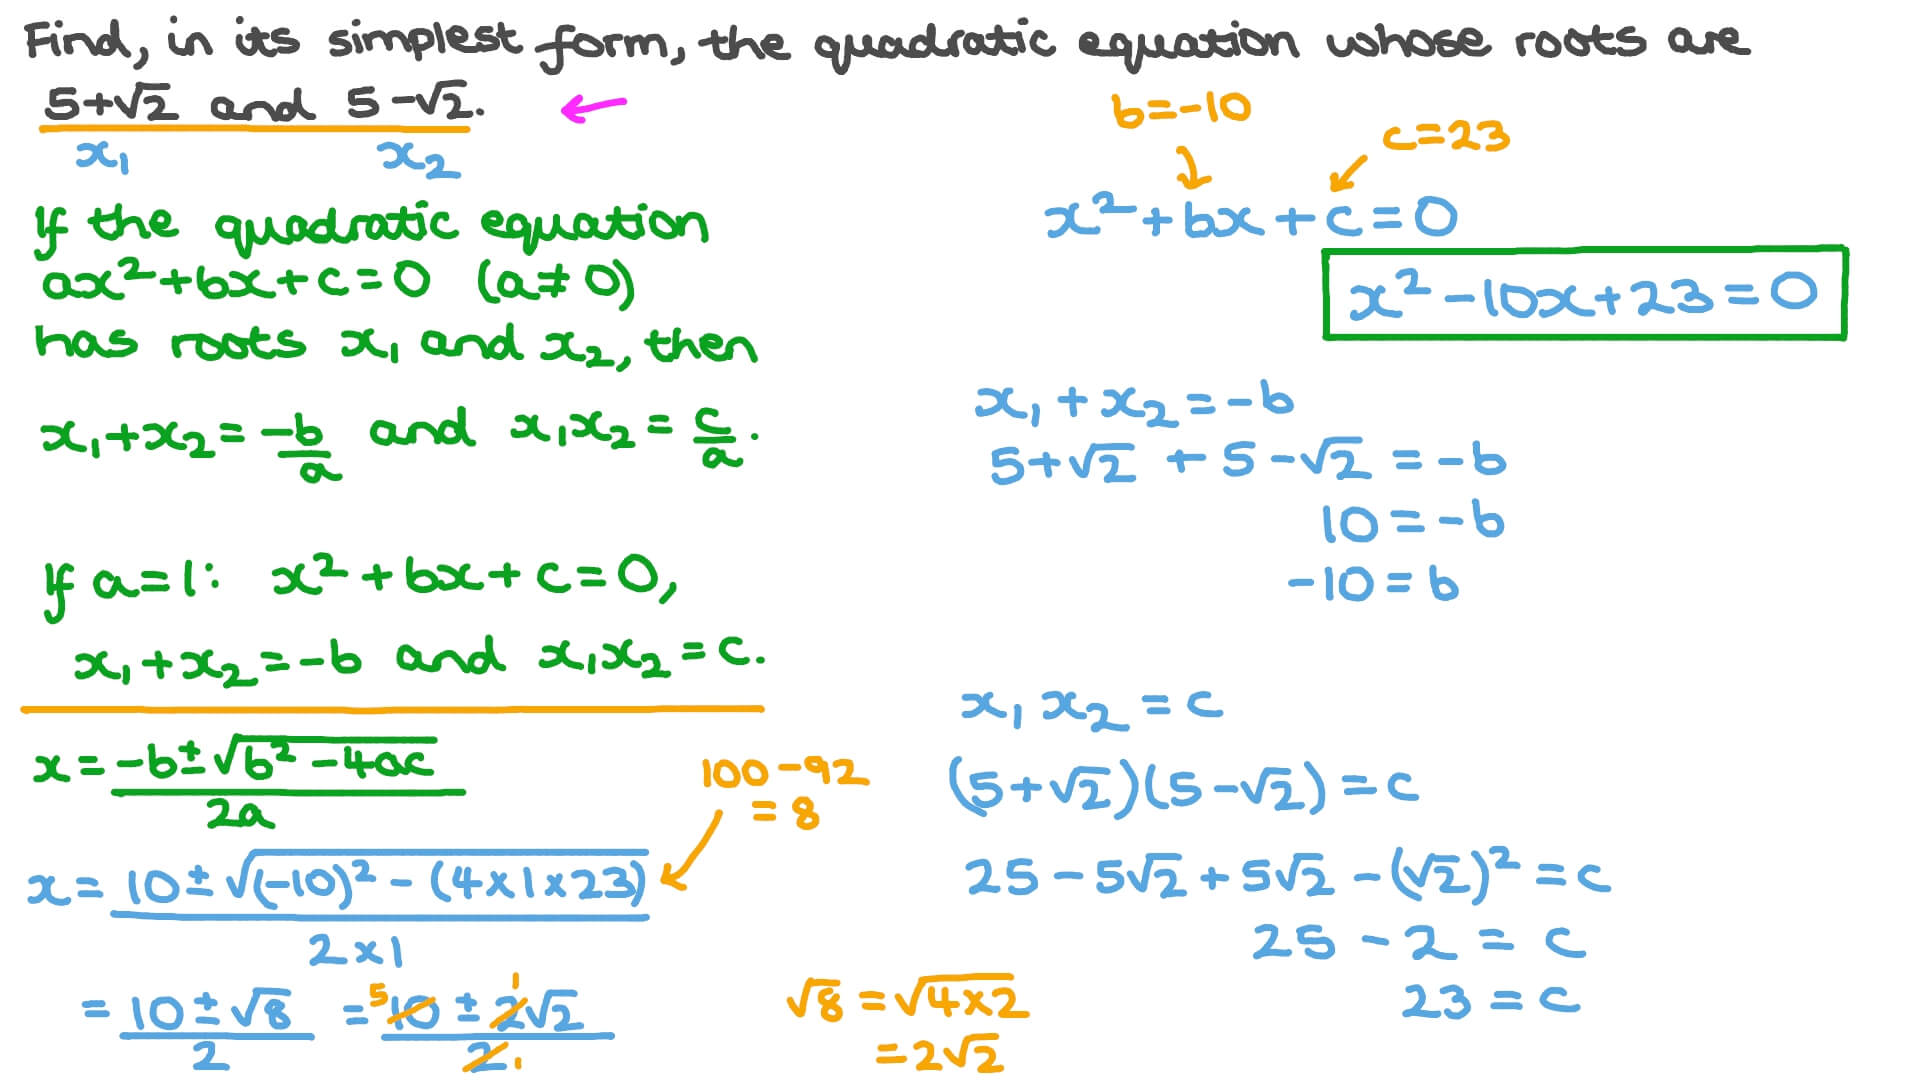 Find, in its simplest form, the quadratic equation whose roots are
5+√2 and 5-√2.
x₁ x₂
If the quadratic equation
ax²+bx+c=0 (a≠0)
has roots x₁ and x₂, then
x₁+x₂=-b/a and x₁x₂=c/a.
If a=1: x²+bx+c=0,
x₁+x₂=-b and x₁x₂=c.
x=-b±√(b²-4ac)/2a
100-92
=8
x=10±√((-10)²-(4×1×23))/2×1
=10±√8/2 =10±2√2/2
5 1 1
√8=√(4×2)
=2√2
b=-10
c=23
x²+bx+c=0
x²-10x+23=0
x₁+x₂=-b
5+√2+5-√2=-b
10=-b
-10=b
x₁x₂=c
(5+√2)(5-√2)=c
25-5√2+5√2-(√2)²=c
25-2=c
23=c